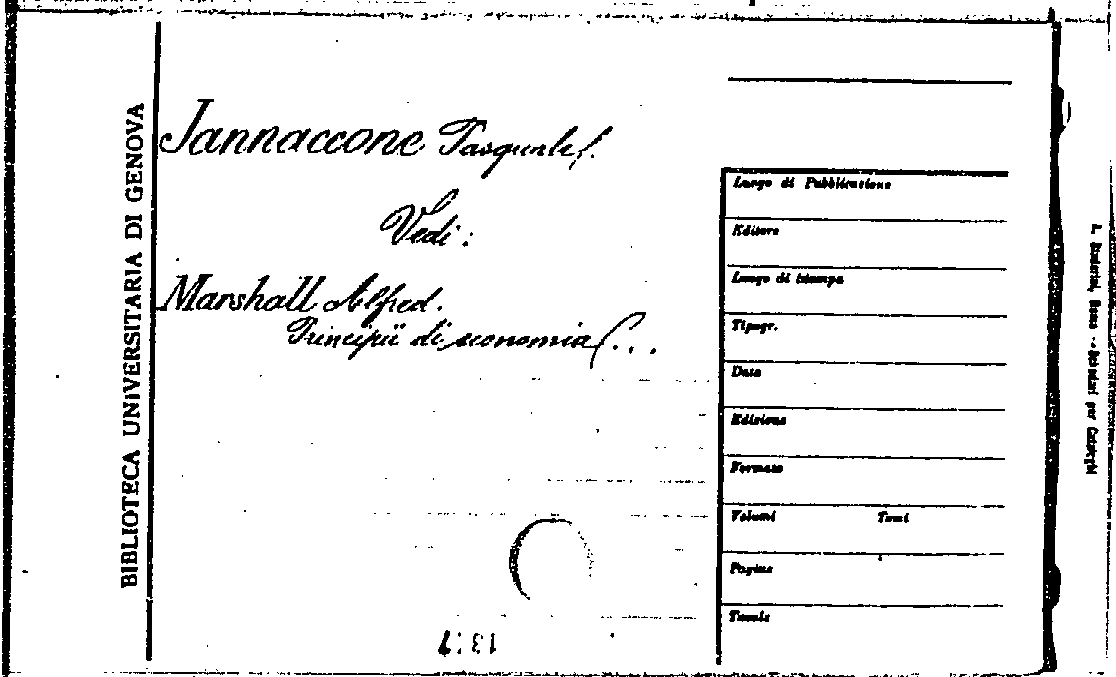 BIBLIOTECA UNIVERSITARIA DI GENOVA
Jannaccone Pasquale.
Vedi:
Marshall Alfred.
Principii di economia (...
Luogo di Pubblicazione
Editore
Luogo di stampa
Tipogr.
Data
Edizione
Formato
Volumi Tomi
Pagine
Tavole
per Cataloghi